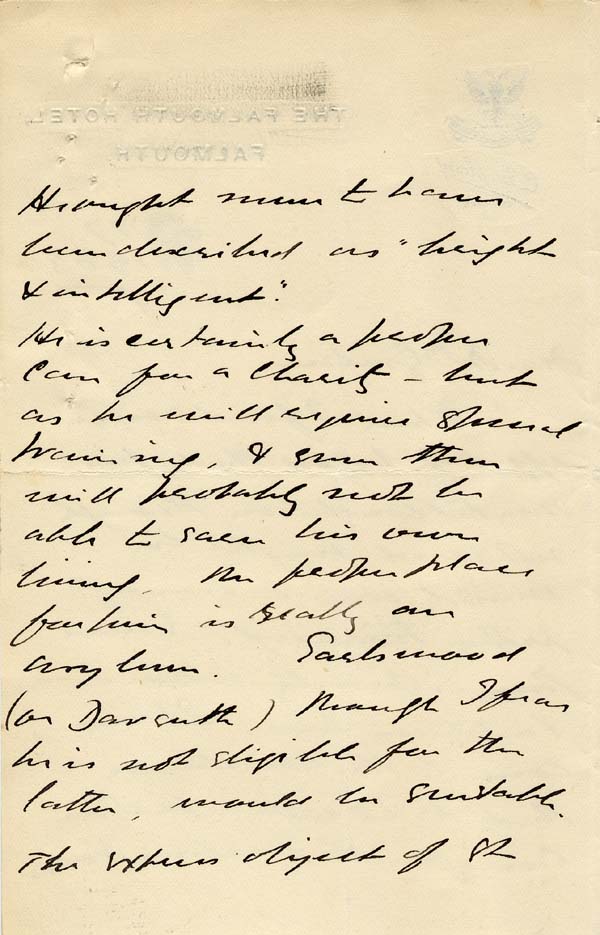 THE FALMOUTH HOTEL,
FALMOUTH.
He ought never to have
been described as "bright
& intelligent".
He is certainly a proper
case for a Charity – but
as he will require special
training, & even then
will probably not be
able to earn his own
living, the proper place
for him is really an
asylum. Earlswood
(or Darenth) though I fear
he is not eligible for the
latter, would be suitable.
The express object of St